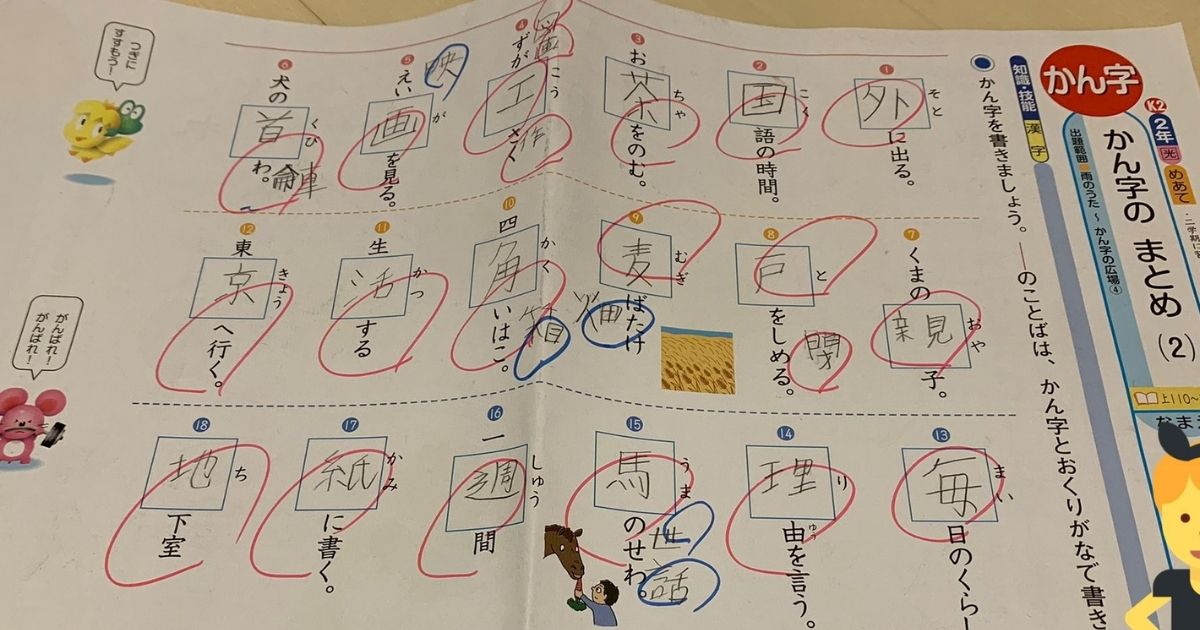 かん字
K2 2年 光 めあて
かん字の まとめ (2)
出題範囲 雨のうた ～ かん字の広場④
上110～
なまえ
知識・技能 漢字
かん字を書きましょう。――のことばは、かん字とおくりがなで書き
1 外に出る。
そと
2 国語の時間。
こく
3 お茶をのむ。
ちゃ
4 ずが工さく
こう
図画
作
5 えい画を見る。
が
映
6 犬の首わ。
くび
輪
つぎに
すすもう!
7 くまの親子。
おや
8 戸をしめる。
と
閉
9 麦ばたけ
むぎ
畑
10 四角いはこ。
かく
箱
11 生活する
かつ
12 東京へ行く。
きょう
がんばれ!
がんばれ!
13 毎日のくらし
まい
14 理由を言う。
り ゆう
15 馬のせわ。
うま
世話
16 一週間
しゅう
17 紙に書く。
かみ
18 地下室
ち